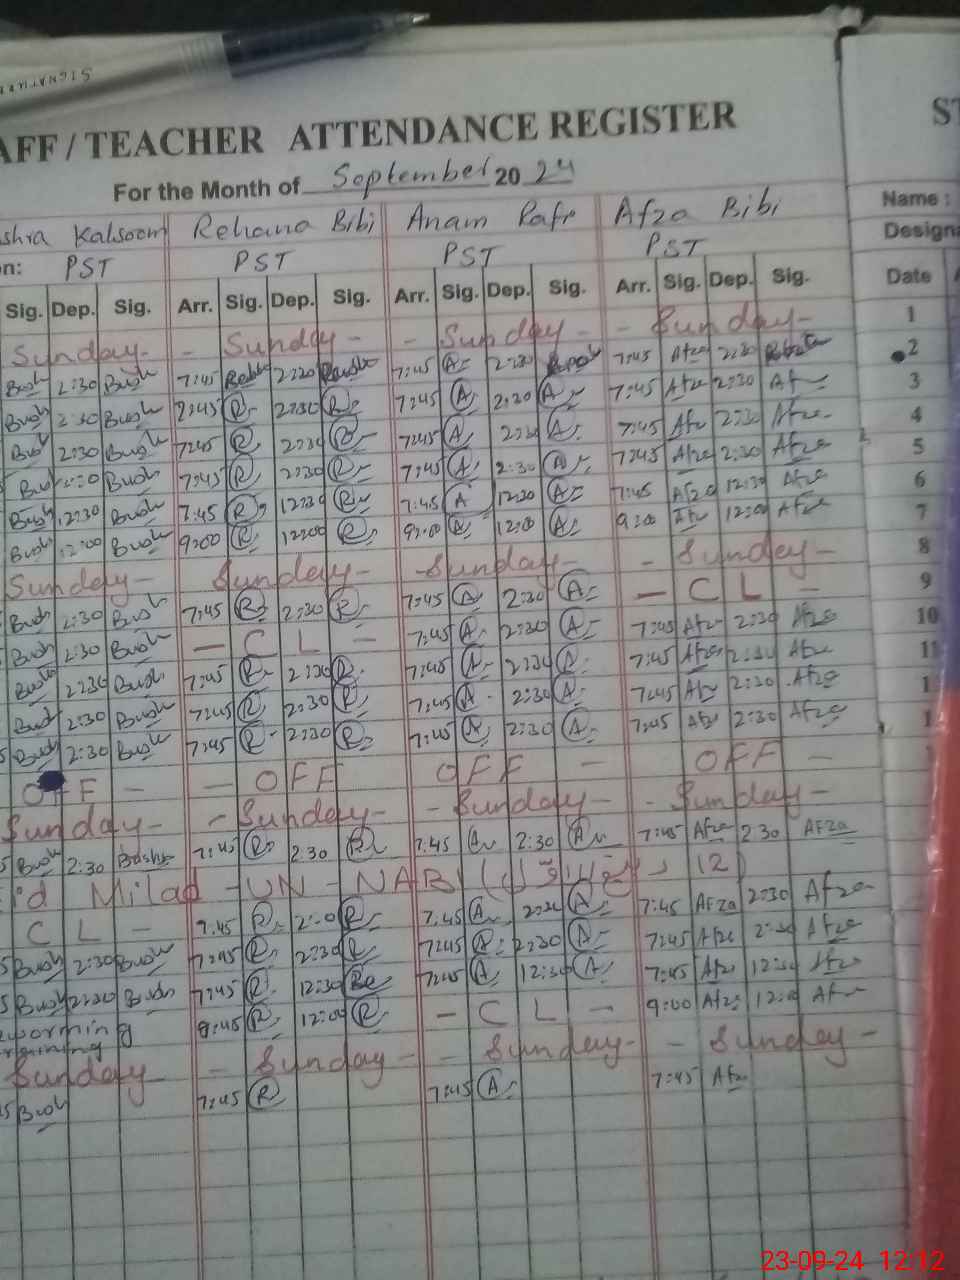 SIGNATURE
AFF / TEACHER ATTENDANCE REGISTER
For the Month of September 2024
shra Kalsoom Rehana Bibi Anam Rafi Afza Bibi Name :
on: PST PST PST PST Designa
Sig. Dep. Sig. Arr. Sig. Dep. Sig. Arr. Sig. Dep. Sig. Arr. Sig. Dep. Sig. Date
Sunday - - Sunday - - Sunday - - Sunday - 1
Bush 2:30 Bush 7:45 2:30 7:45 A 2:30 7:45 Afza 2:30 2
Bush 2:30 Bush 7:45 R 2:30 R 7:45 A 2:30 A 7:45 Afza 2:30 Af 3
Bush 2:30 Bush 7:45 R 2:30 R 7:45 A 2:30 A 7:45 Afza 2:30 Afza 4
Bush Bush 7:45 R 2:30 R 7:45 A 2:30 A 7:45 Afza 2:30 Afza 5
Bush 12:30 Bush 7:45 R 12:30 R 7:45 A 12:30 A 7:45 Afza 12:30 Afza 6
Bush 12:00 Bush 9:00 R 12:00 R 9:00 A 12:00 A 9:00 Afza 12:00 Afza 7
Sunday - Sunday - - Sunday - - Sunday - 8
Bush 2:30 Bush 7:45 R 2:30 R 7:45 A 2:30 A - C L - 9
Bush 2:30 Bush - C L - 7:45 A 2:30 A 7:45 Afza 2:30 Afza 10
Bush 2:30 Bush 7:45 R 2:30 R 7:45 A 2:30 A 7:45 Afza 2:30 Afza 11
Bush 2:30 Bush 7:45 R 2:30 R 7:45 A 2:30 A 7:45 Afza 2:30 Afza 1
Bush 2:30 Bush 7:45 R 2:30 R 7:45 A 2:30 A 7:45 Afza 2:30 Afza 1
OFF - - OFF OFF - OFF -
Sunday - - Sunday - - Sunday - - Sunday -
Bush 2:30 Bushr 7:45 R 2:30 R 7:45 A 2:30 A 7:45 Afza 2:30 AFZa
id Milad - UN - NABI 12)
C L - 7:45 R R 7:45 A 2:30 A 7:45 AFza 2:30 Afza
Bush 2:30 Bush 7:45 R 2:30 R 7:45 A 2:30 A 7:45 Afza 2:30 Afza
Bush 12:30 Bush 7:45 R 12:30 7:45 A 12:30 A 7:45 Afza 12:30 Afza
eworming 8:45 R 12:00 R - C L - 9:00 Afza 12:00 Afza
raining
Sunday - Sunday - - Sunday - - Sunday -
Bush 7:45 R 7:45 A 7:45 Afza
23-09-24 12:12